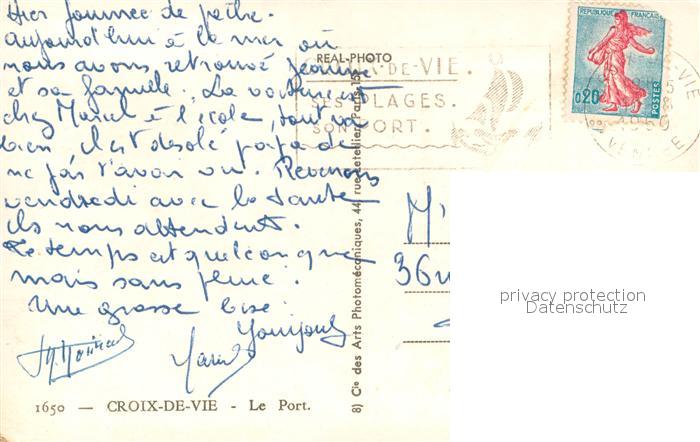 Hier journée de pêche.
aujourd'hui à la mer où
nous avons retrouvé Jeanne
et sa famille. La voiture est
chez Marcel à l'école, tout va
bien il est désolé papa de
ne pas t'avoir vu. Revenons
vendredi avec la
ils nous attendent.
Le temps est quelconque
mais sans pluie.
Une grosse bise
1650 — CROIX-DE-VIE - Le Port.
REAL-PHOTO
8) Cie des Arts Photomécaniques, 44, rue Letellier, Paris-15e
CROIX-DE-VIE.
SES PLAGES.
SON PORT.
REPUBLIQUE FRANÇAISE
0,20
POSTES
VENDEE
M
36
privacy protection
Datenschutz